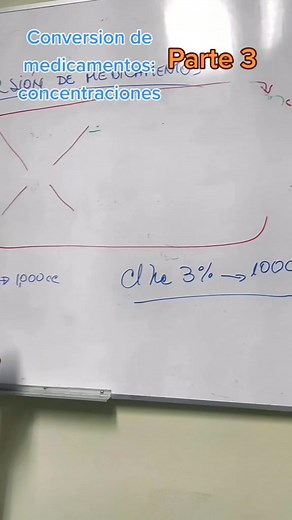 Conversion de
medicamentos:
concentraciones
Parte 3
DE MEDICAMENTOS
→ 1,000cc
ClNa 3% → 1000